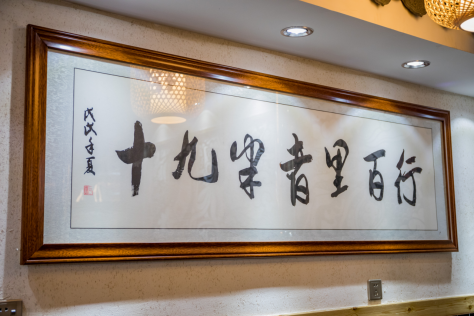 行百里者半九十
戊戌年夏